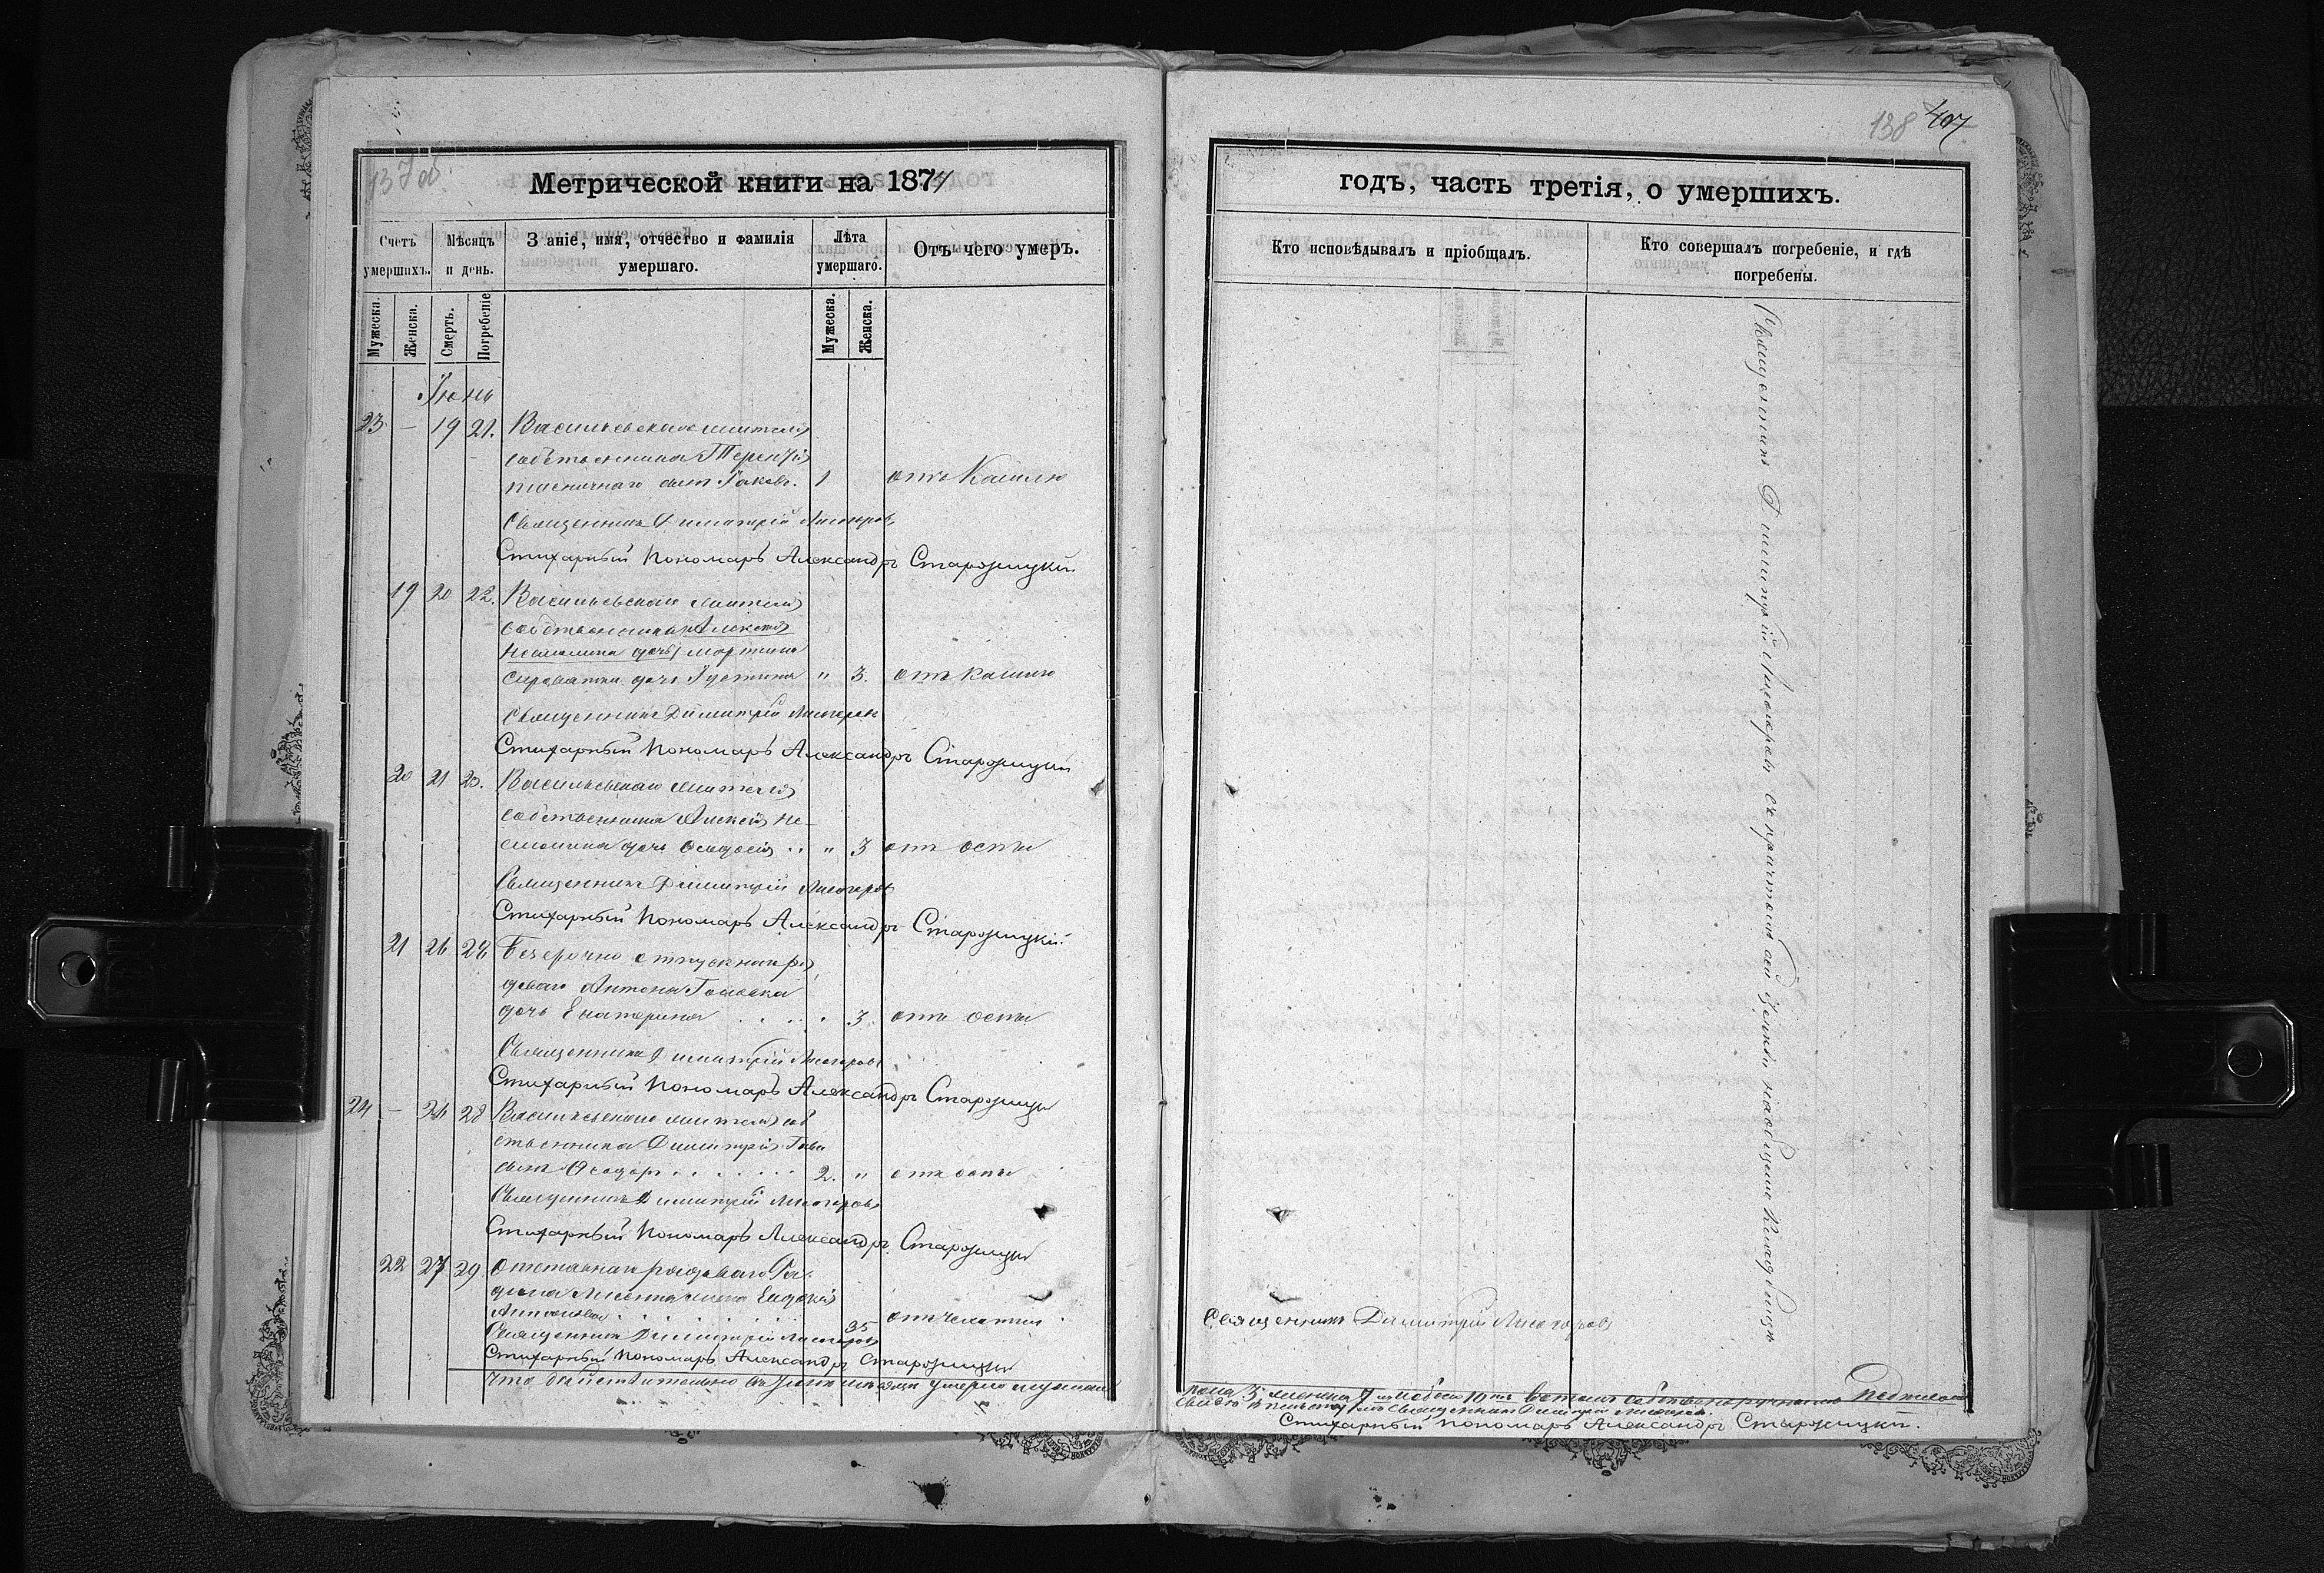 137об.
Метрической книги на 1874
Счетъ умершихъ.
Мѣсяцъ и день.
Званіе, имя, отчество и фамилія умершаго.
Лѣта умершаго.
Отъ чего умеръ.
Мужеска.
Женска.
Смерть.
Погребеніе
Мужеска.
Женска.
Іюнь
23 – 19 21. Васильевскаго жителя
собственника Терентія
Пшеничнаго сынъ Іаковъ. 1 отъ Кашлю
Священникъ Димитрій Лисогоровъ
Стихарный Пономарь Александръ Старожицкій
19 20 22. Васильевскаго жителя
собственника Алексѣя
дочь Мартина
дочь Іустина „ 3. отъ кашлю
Священникъ Димитрій Лисогоровъ
Стихарный Пономарь Александръ Старожицкій
20 21 23. Васильевскаго жителя
собственника Алексѣя Не-
дочь Ѳеодосія „ 3 отъ оспы
Священникъ Димитрій Лисогоровъ
Стихарный Пономарь Александръ Старожицкій
21 26 28 Безсрочно отпускнаго ря
доваго Антона
дочь Екатерина 3. отъ оспы
Священникъ Димитрій Лисогоровъ
Стихарный Пономарь Александръ Старожицкій
24 – 26 28 Васильевскаго жителя соб
ственника Димитрія
сынъ Ѳеодоръ 2. „ отъ оспы
Священникъ Димитрій Лисогоровъ
Стихарный Пономарь Александръ Старожицкій
22 27 29 Отставнаго рядоваго
жена Евдокія
Антонова 35 отъ чахотки
Священникъ Димитрій Лисогоровъ
Стихарный Пономарь Александръ Старожицкій
Что действительно въ Іюнѣ мѣсяцѣ умерло мужеска
138 407
годъ, часть третія, о умершихъ.
Кто исповѣдывалъ и пріобщалъ.
Кто совершалъ погребеніе, и гдѣ погребены.
Священникъ Димитрій Лисогоровъ съ причтомъ сей церкви на общемъ кладбищѣ
Священникъ Димитрій Лисогоровъ
пола 3 женска 7 обоего 10 въ томъ собственоручнымъ подписомъ
Священникъ Димитрій Лисогоровъ.
Стихарный Пономарь Александръ Старожицкій.